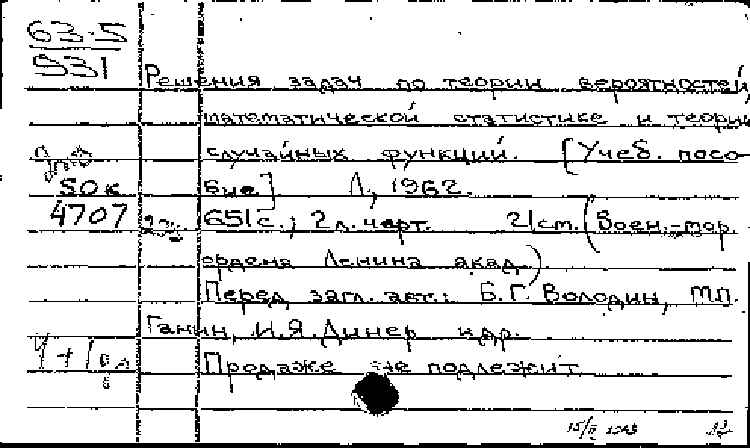 63-5
931
Решения задач по теории вероятностей,
математической статистике и теории
случайных функций. [Учеб. посо-
бие]. Л., 1962.
80к
4707
651с.; 2л. черт. 21см. (Воен.-мор.
ордена Ленина акад.)
Перед загл. авт.: Б.Г. Володин, М.П.
Ганин, И.Я. Динер и др.
Продаже не подлежит